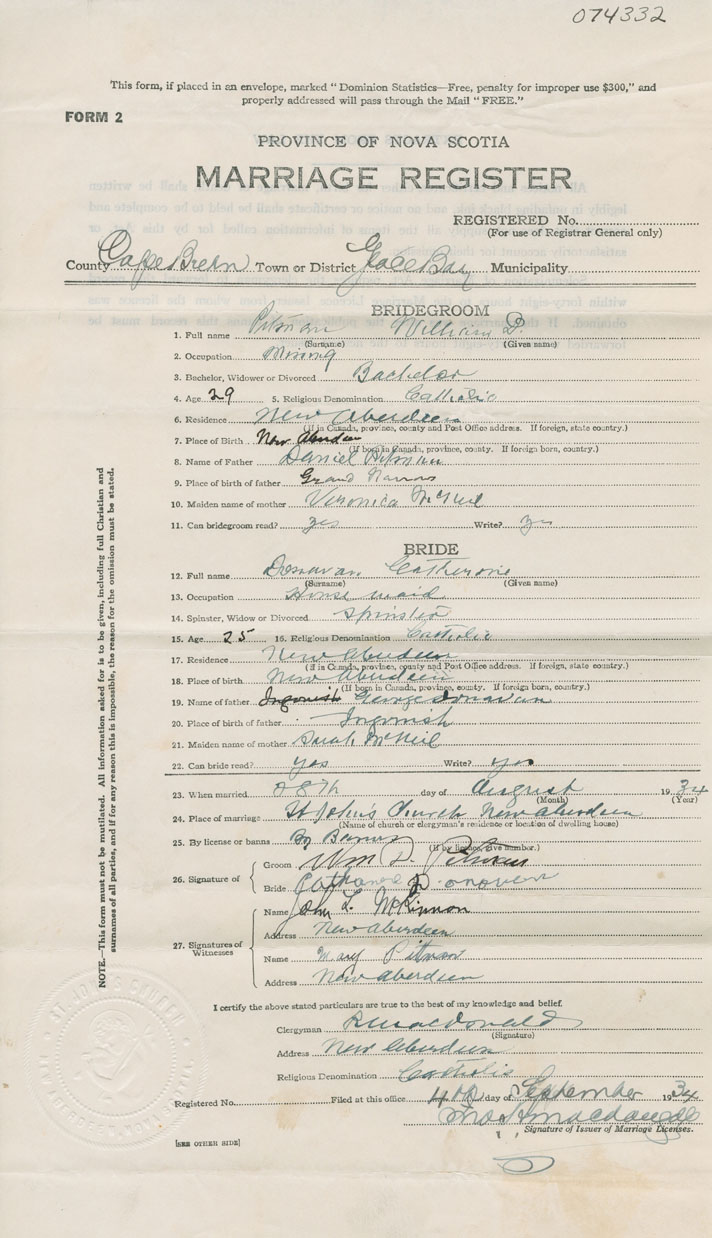 074332
This form, if placed in an envelope, marked "Dominion Statistics—Free, penalty for improper use $300," and
properly addressed will pass through the Mail "FREE."
FORM 2
PROVINCE OF NOVA SCOTIA
MARRIAGE REGISTER
REGISTERED No.
(For use of Registrar General only)
County Cape Breton Town or District Glace Bay Municipality
BRIDEGROOM
1. Full name Pitman William D.
(Surname) (Given name)
2. Occupation Mining
3. Bachelor, Widower or Divorced Bachelor
4. Age 29 5. Religious Denomination Catholic
6. Residence New Aberdeen
(If in Canada, province, county and Post Office address. If foreign, state country.)
7. Place of Birth New Aberdeen
(If born in Canada, province, county. If foreign born, country.)
8. Name of Father Daniel Pitman
9. Place of birth of father Grand Narrows
10. Maiden name of mother Veronica McNeil
11. Can bridegroom read? yes Write? yes
BRIDE
12. Full name Donavan Catherine
(Surname) (Given name)
13. Occupation House maid
14. Spinster, Widow or Divorced Spinster
15. Age 25 16. Religious Denomination Catholic
17. Residence New Aberdeen
(If in Canada, province, county and Post Office address. If foreign, state country.)
18. Place of birth New Aberdeen
(If born in Canada, province, county. If foreign born, country.)
19. Name of father Ingonish George Donavan
20. Place of birth of father Ingonish
21. Maiden name of mother Sarah McNeil
22. Can bride read? yes Write? yes
23. When married 28th day of August 1934
(Month) (Year)
24. Place of marriage St John's Church New Aberdeen
(Name of church or clergyman's residence or location of dwelling house)
25. By license or banns By Banns
(If by license, give number.)
26. Signature of
Groom Wm D. Pitman
Bride Catherine Donovan
27. Signatures of Witnesses
Name John L. McKinnon
Address New Aberdeen
Name Mary Pitman
Address New Aberdeen
I certify the above stated particulars are true to the best of my knowledge and belief.
Clergyman R Macdonald
(Signature)
Address New Aberdeen
Religious Denomination Catholic
Registered No. Filed at this office 4th day of September 1934
Macdougall
Signature of Issuer of Marriage Licenses.
[SEE OTHER SIDE]
NOTE.—This form must not be mutilated. All information asked for is to be given, including full Christian and
surnames of all parties, and if for any reason this is impossible, the reason for the omission must be stated.